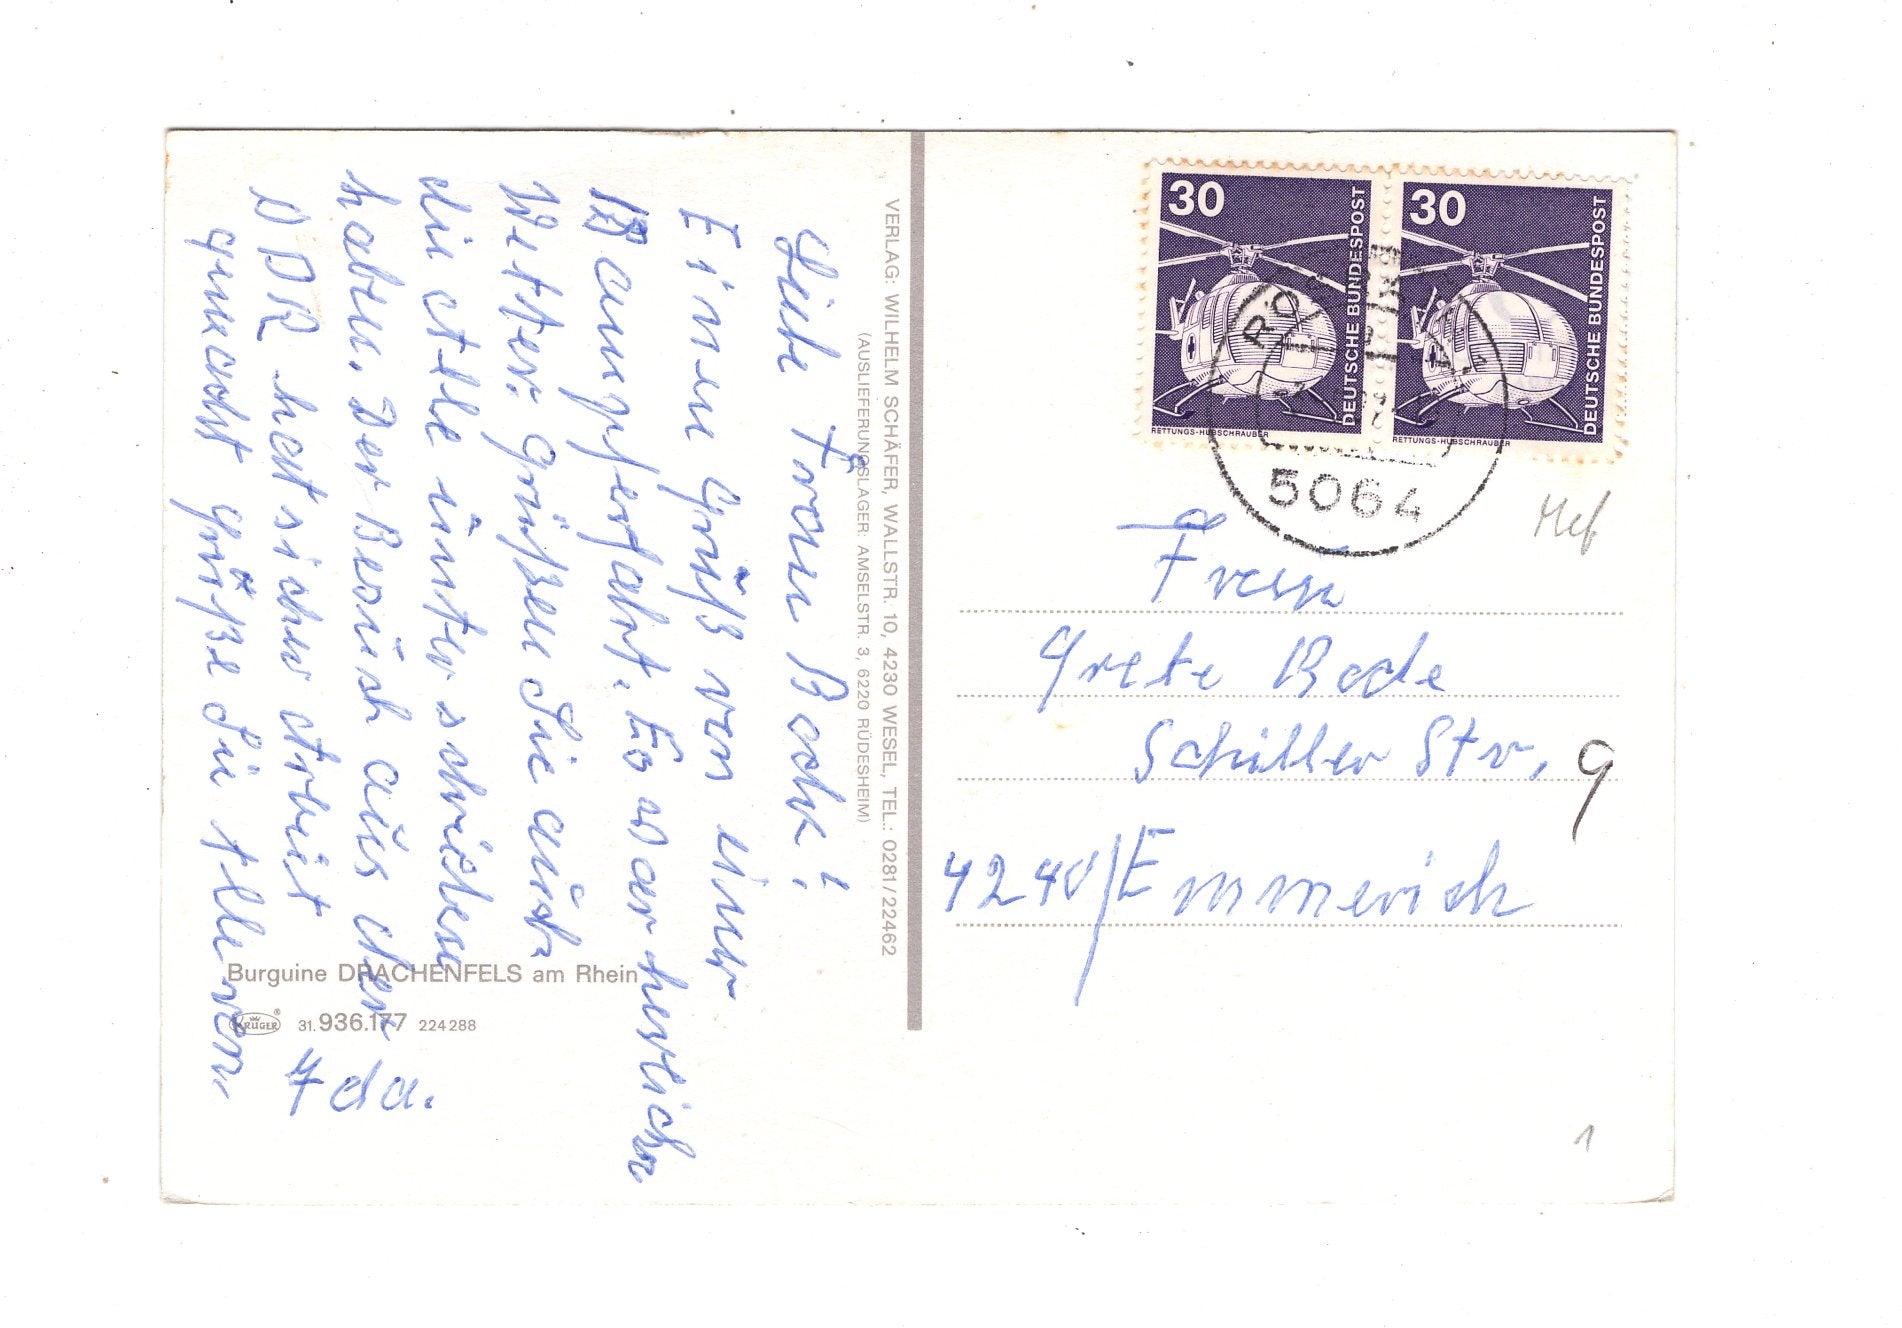 Liebe Frau Bode!
Einen Gruß von einer
Dampferfahrt. Es war herlich
Wetter. Grüßen Sie auch
die alle unterschrieben
haben. Der Besuch aus der
DDR hat sicher Arbeit
gemacht Grüße Sie
Ada.
VERLAG: WILHELM SCHÄFER, WALLSTR. 10, 4230 WESEL, TEL.: 0281/22462
(AUSLIEFERUNGSLAGER: AMSELSTR. 3, 6220 RÜDESHEIM)
Burguine DRACHENFELS am Rhein
KRÜGER 31.936.177 224288
30 DEUTSCHE BUNDESPOST
RETTUNGS-HUBSCHRAUBER
30 DEUTSCHE BUNDESPOST
RETTUNGS-HUBSCHRAUBER
5064
Frau
Grete Bode
Schiller Str. 9
4240/Emmerich
1